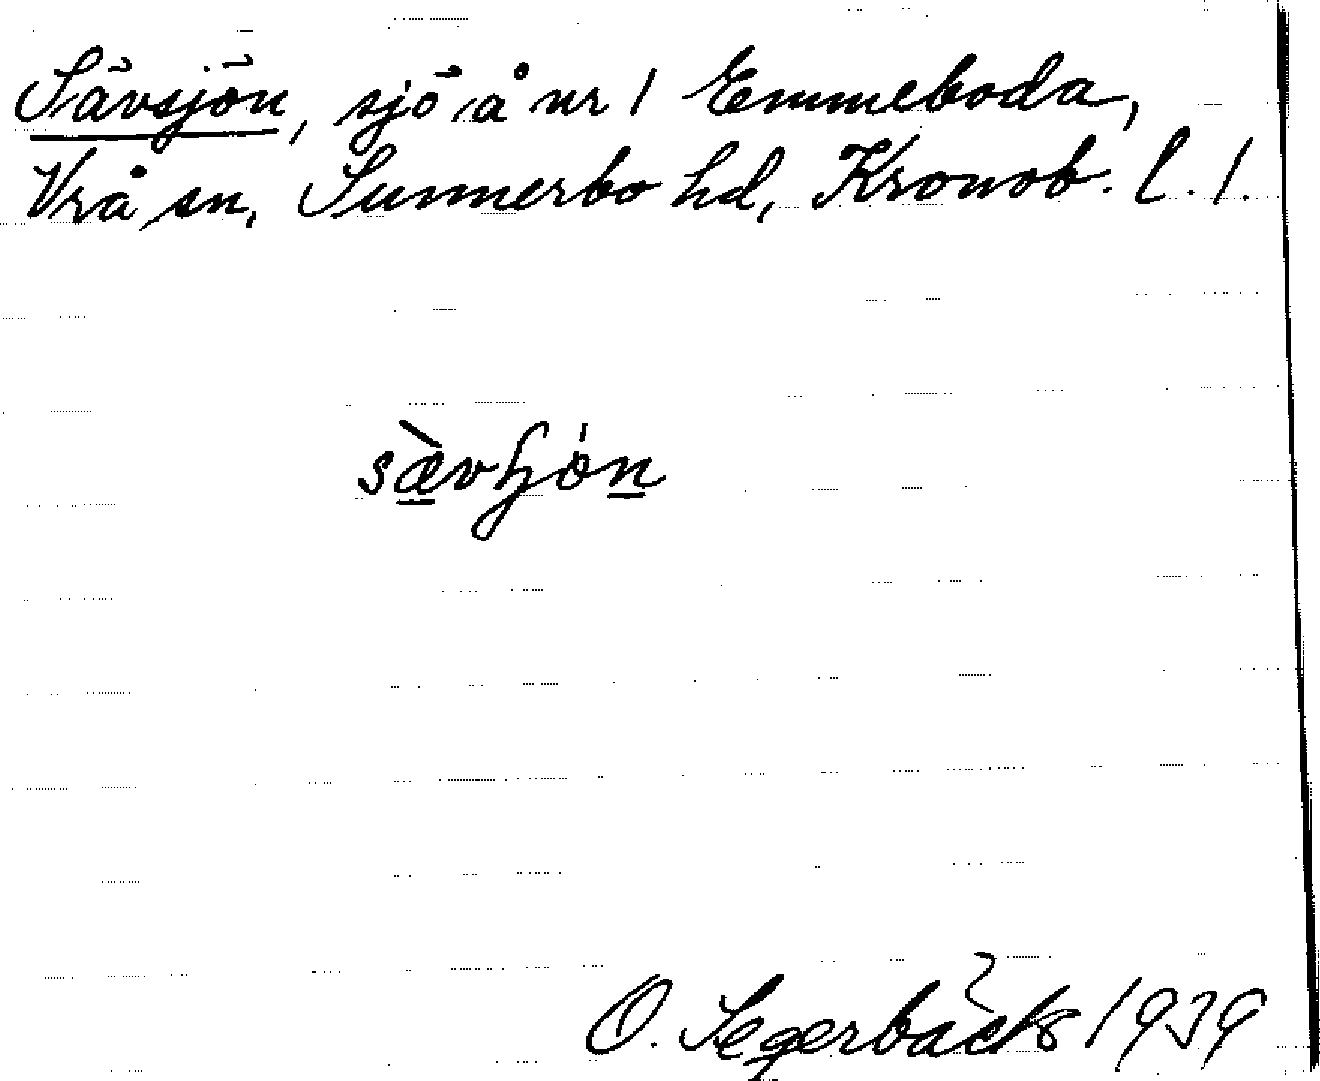 Sävsjön, sjö å nr 1 Emmeboda,
Vrå sn, Sunnerbo hd, Kronob. l. l.
O. Segerbäck 1939